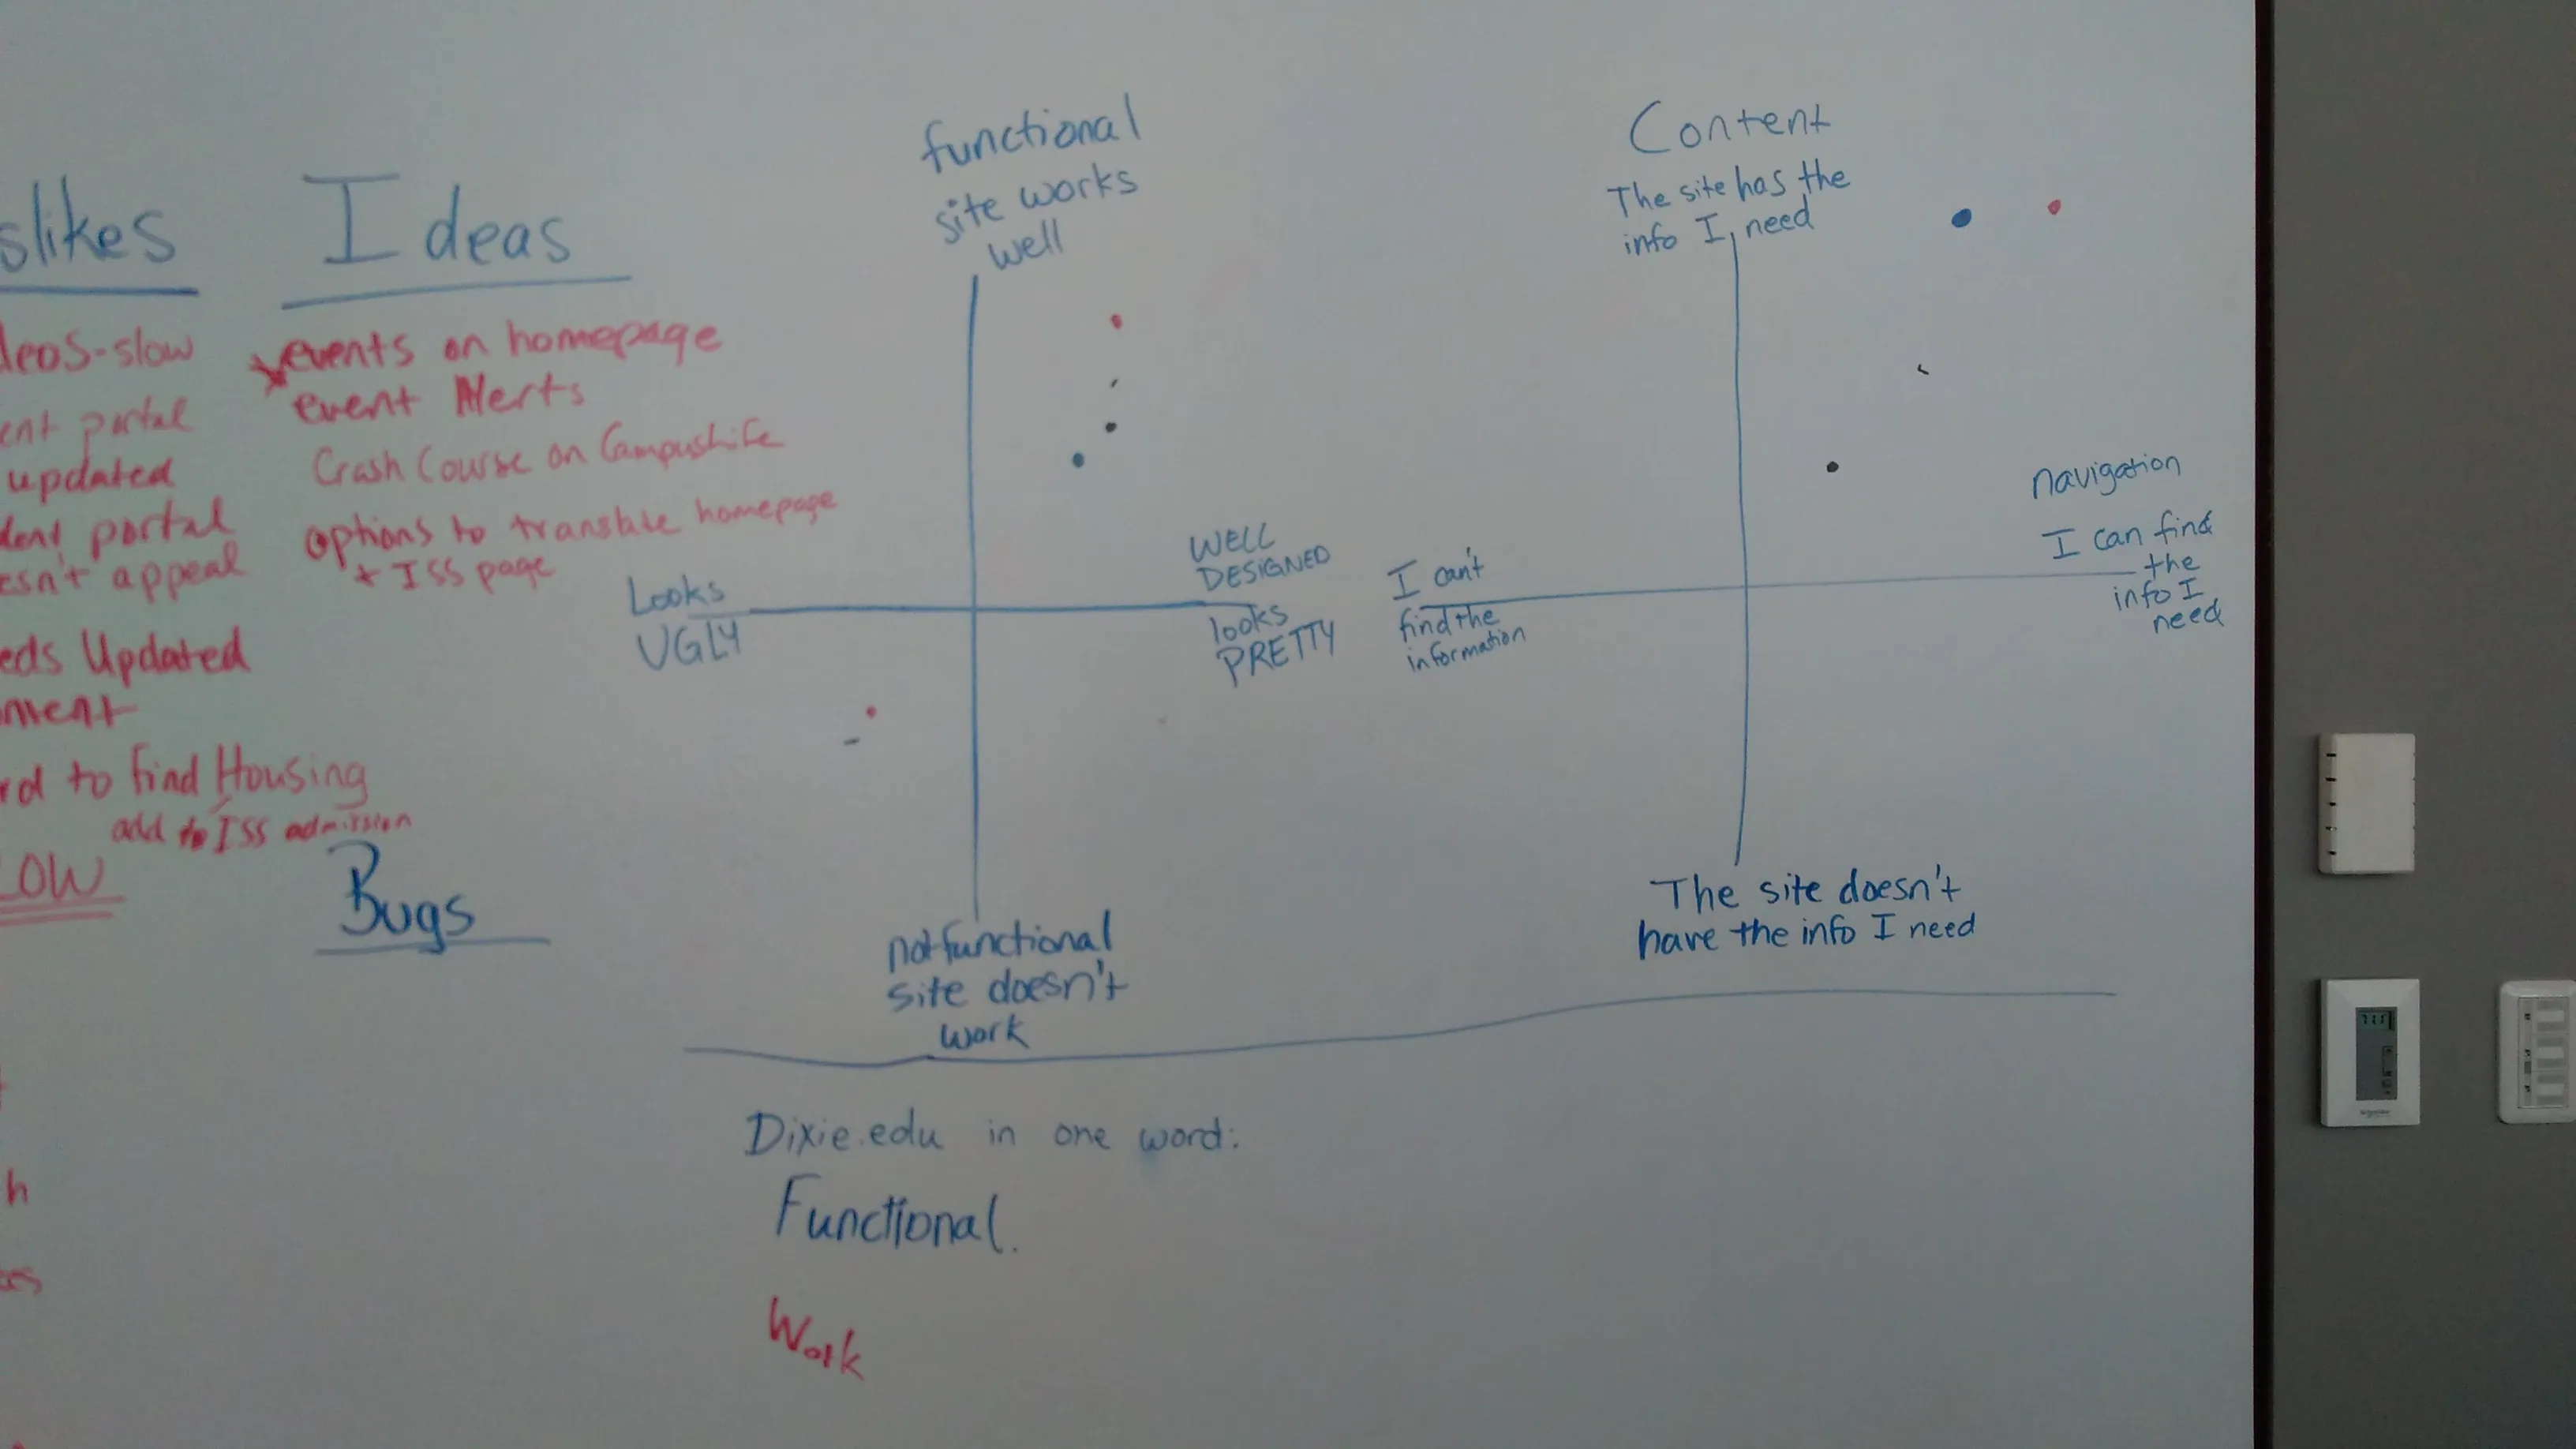 slikes
deos-slow
ent portal
updated
dent portal
esn't appeal
eds Updated
ment
rd to find Housing
add to ISS admission
LOW
h
es
Ideas
events on homepage
event Alerts
Crash Course on CampusLife
options to translate homepage
+ ISS page
Bugs
functional
site works
well
Looks
UGLY
WELL
DESIGNED
looks
PRETTY
not functional
site doesn't
work
Content
The site has the
info I need
I can't
find the
information
navigation
I can find
the
info I
need
The site doesn't
have the info I need
Dixie.edu in one word:
Functional.
Work